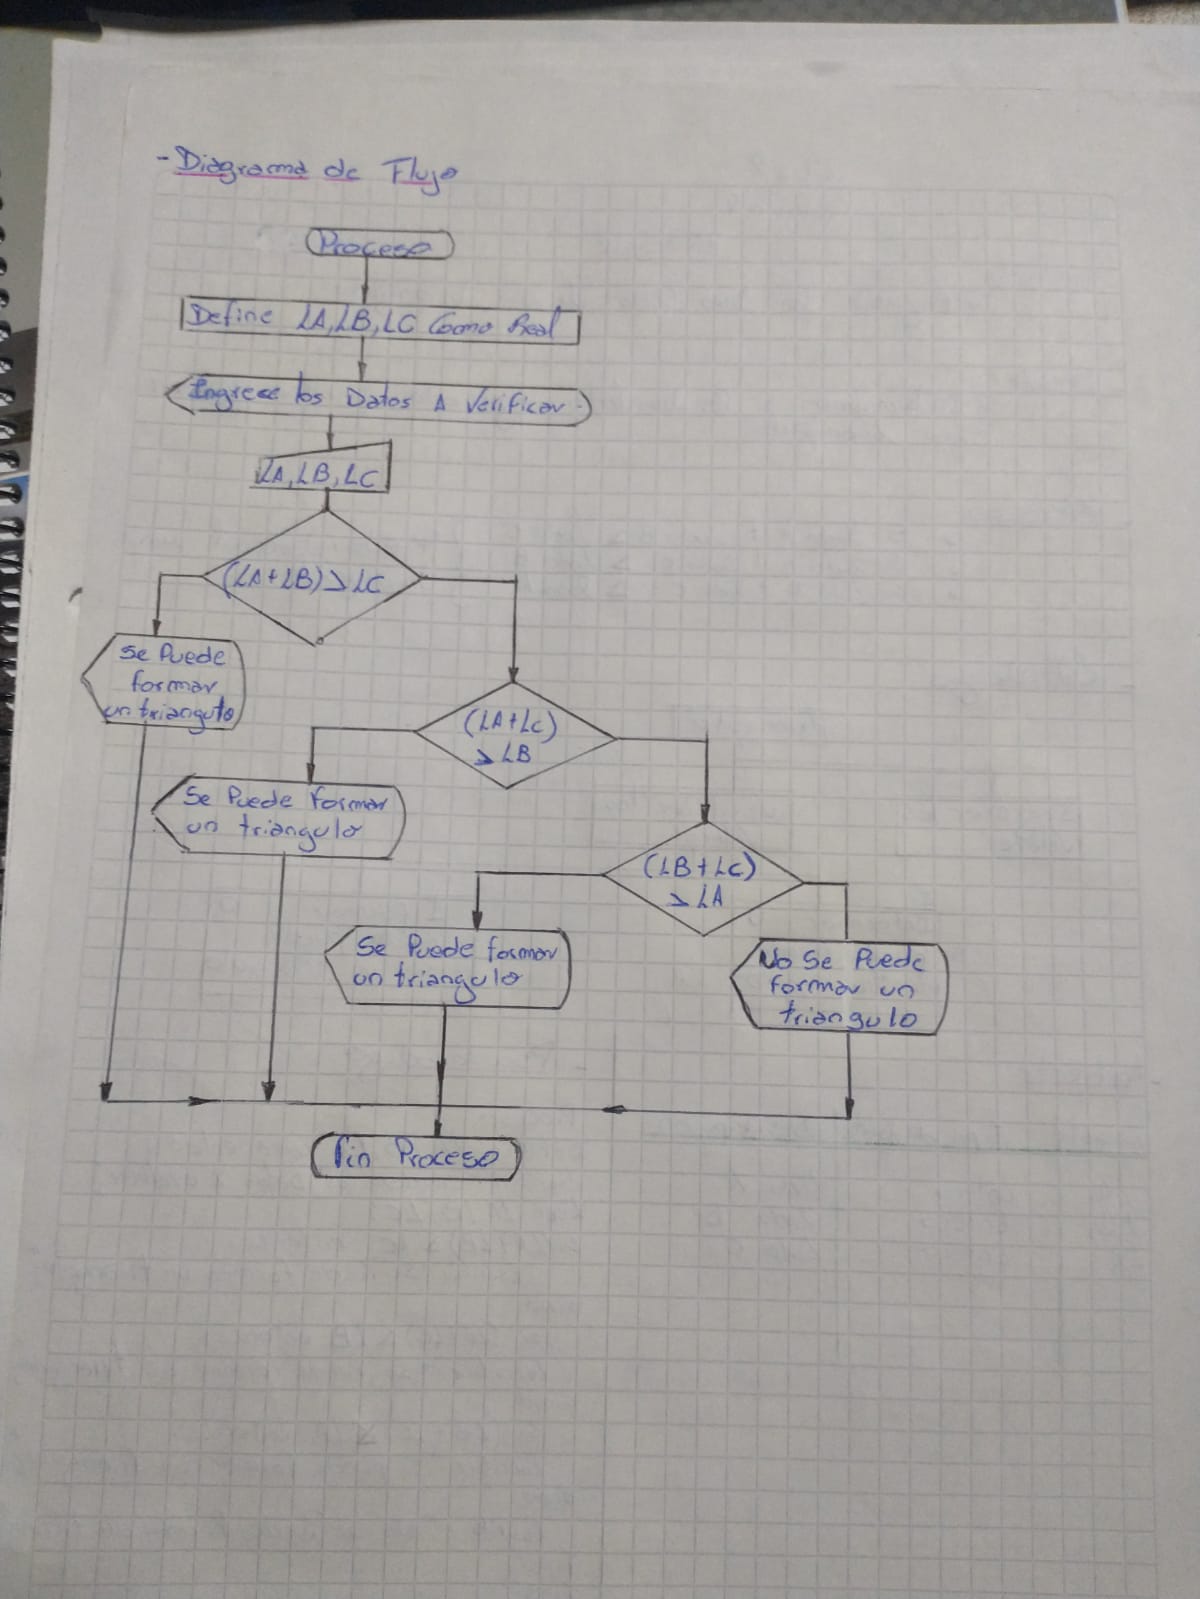 - Diagrama de Flujo
Proceso
Define LA, LB, LC Como Real
Ingrese los Datos A Verificar
LA, LB, LC
(LA+LB) > LC
Se Puede
formar
un triangulo
(LA+LC)
> LB
Se Puede formar
un triangulo
(LB+LC)
> LA
Se Puede formar
un triangulo
No Se Puede
formar un
triangulo
Fin Proceso